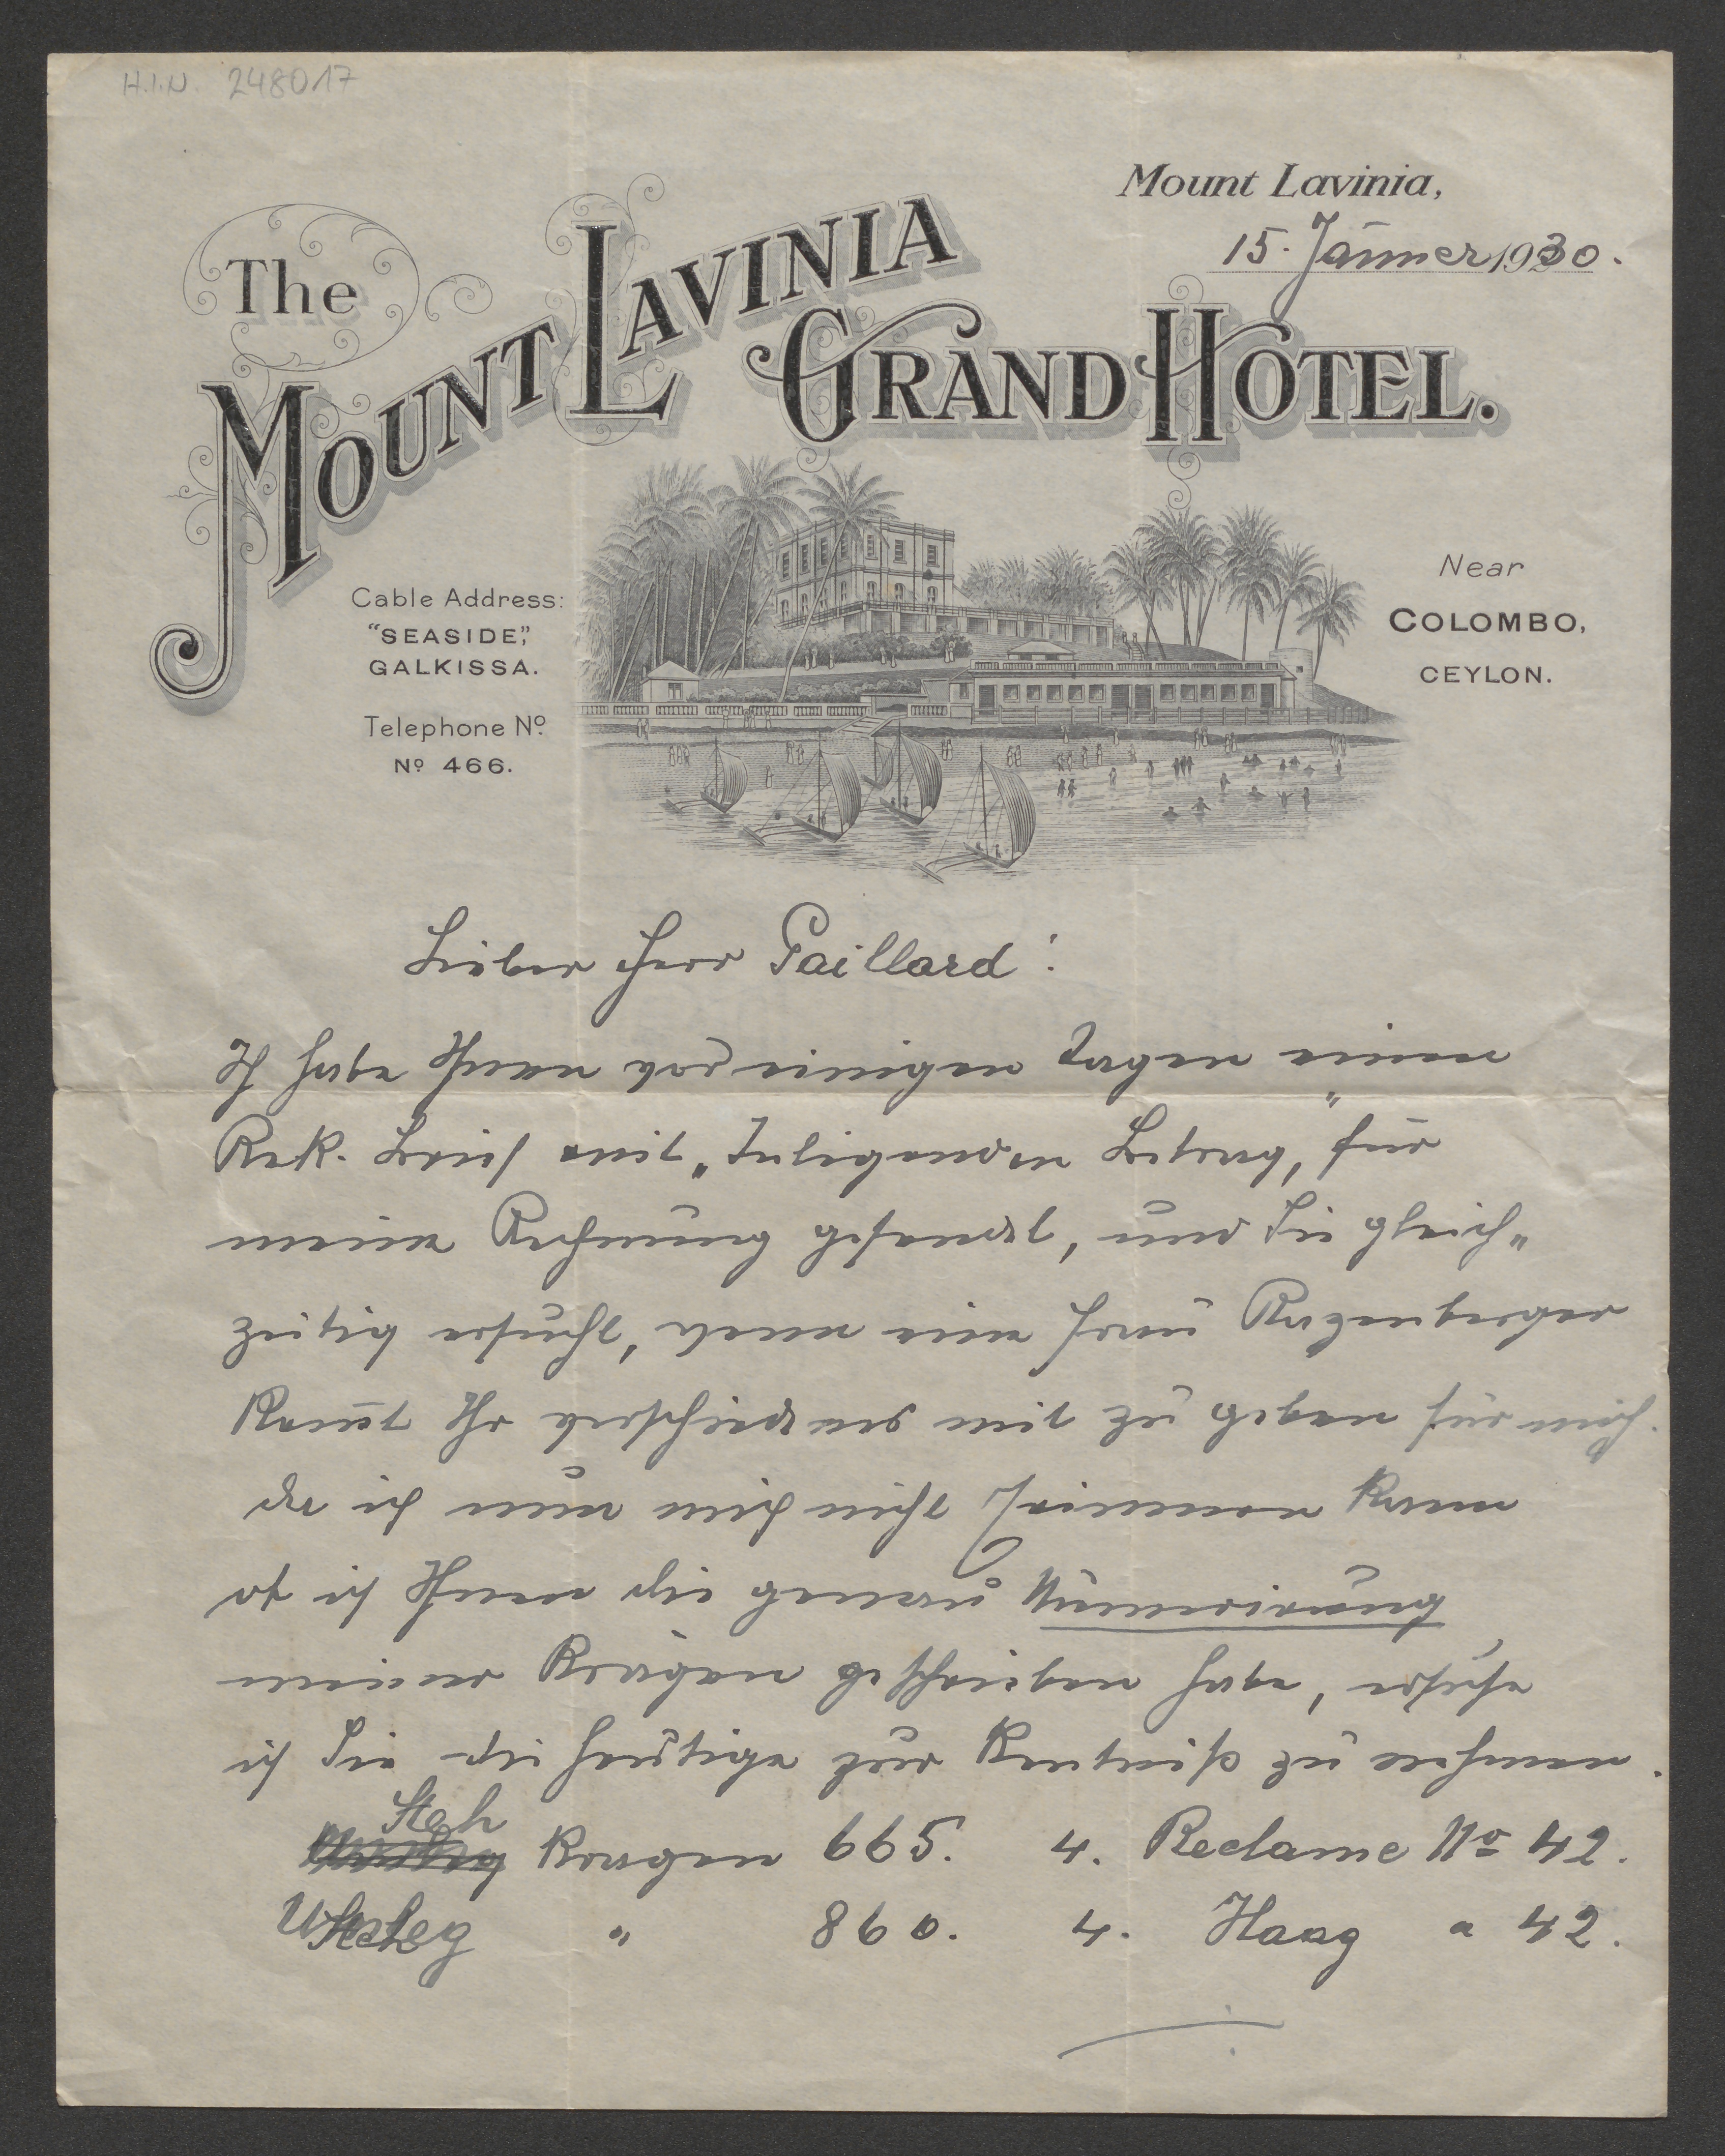 H.I.N. 248017
Mount Lavinia,
15. Jänner 1930.
The
MOUNT LAVINIA
GRAND HOTEL.
Cable Address:
"SEASIDE,"
GALKISSA.
Telephone Nº
Nº 466.
Near
COLOMBO,
CEYLON.
Lieber Herr Paillard!
Ich habe Ihnen vor einigen Tagen einen
Rek. Brief mit „beligenden Betrag" für
meine Rechnung gesendet, und Sie gleich„
zeitig ersucht, wenn eine Frau Razenberger
komt Ihr verschiedenes mit zu geben für mich.
da ich nun mich nicht erinneren kann
ob ich Ihnen die genaue Numerirung
meiner Krägen geschrieben habe, ersuche
ich Sie die heutige zur Kentniß zu nehmen.
Steh
Kragen 665. 4. Reclame Nº 42.
Umleg " 860. 4. Haag a 42.